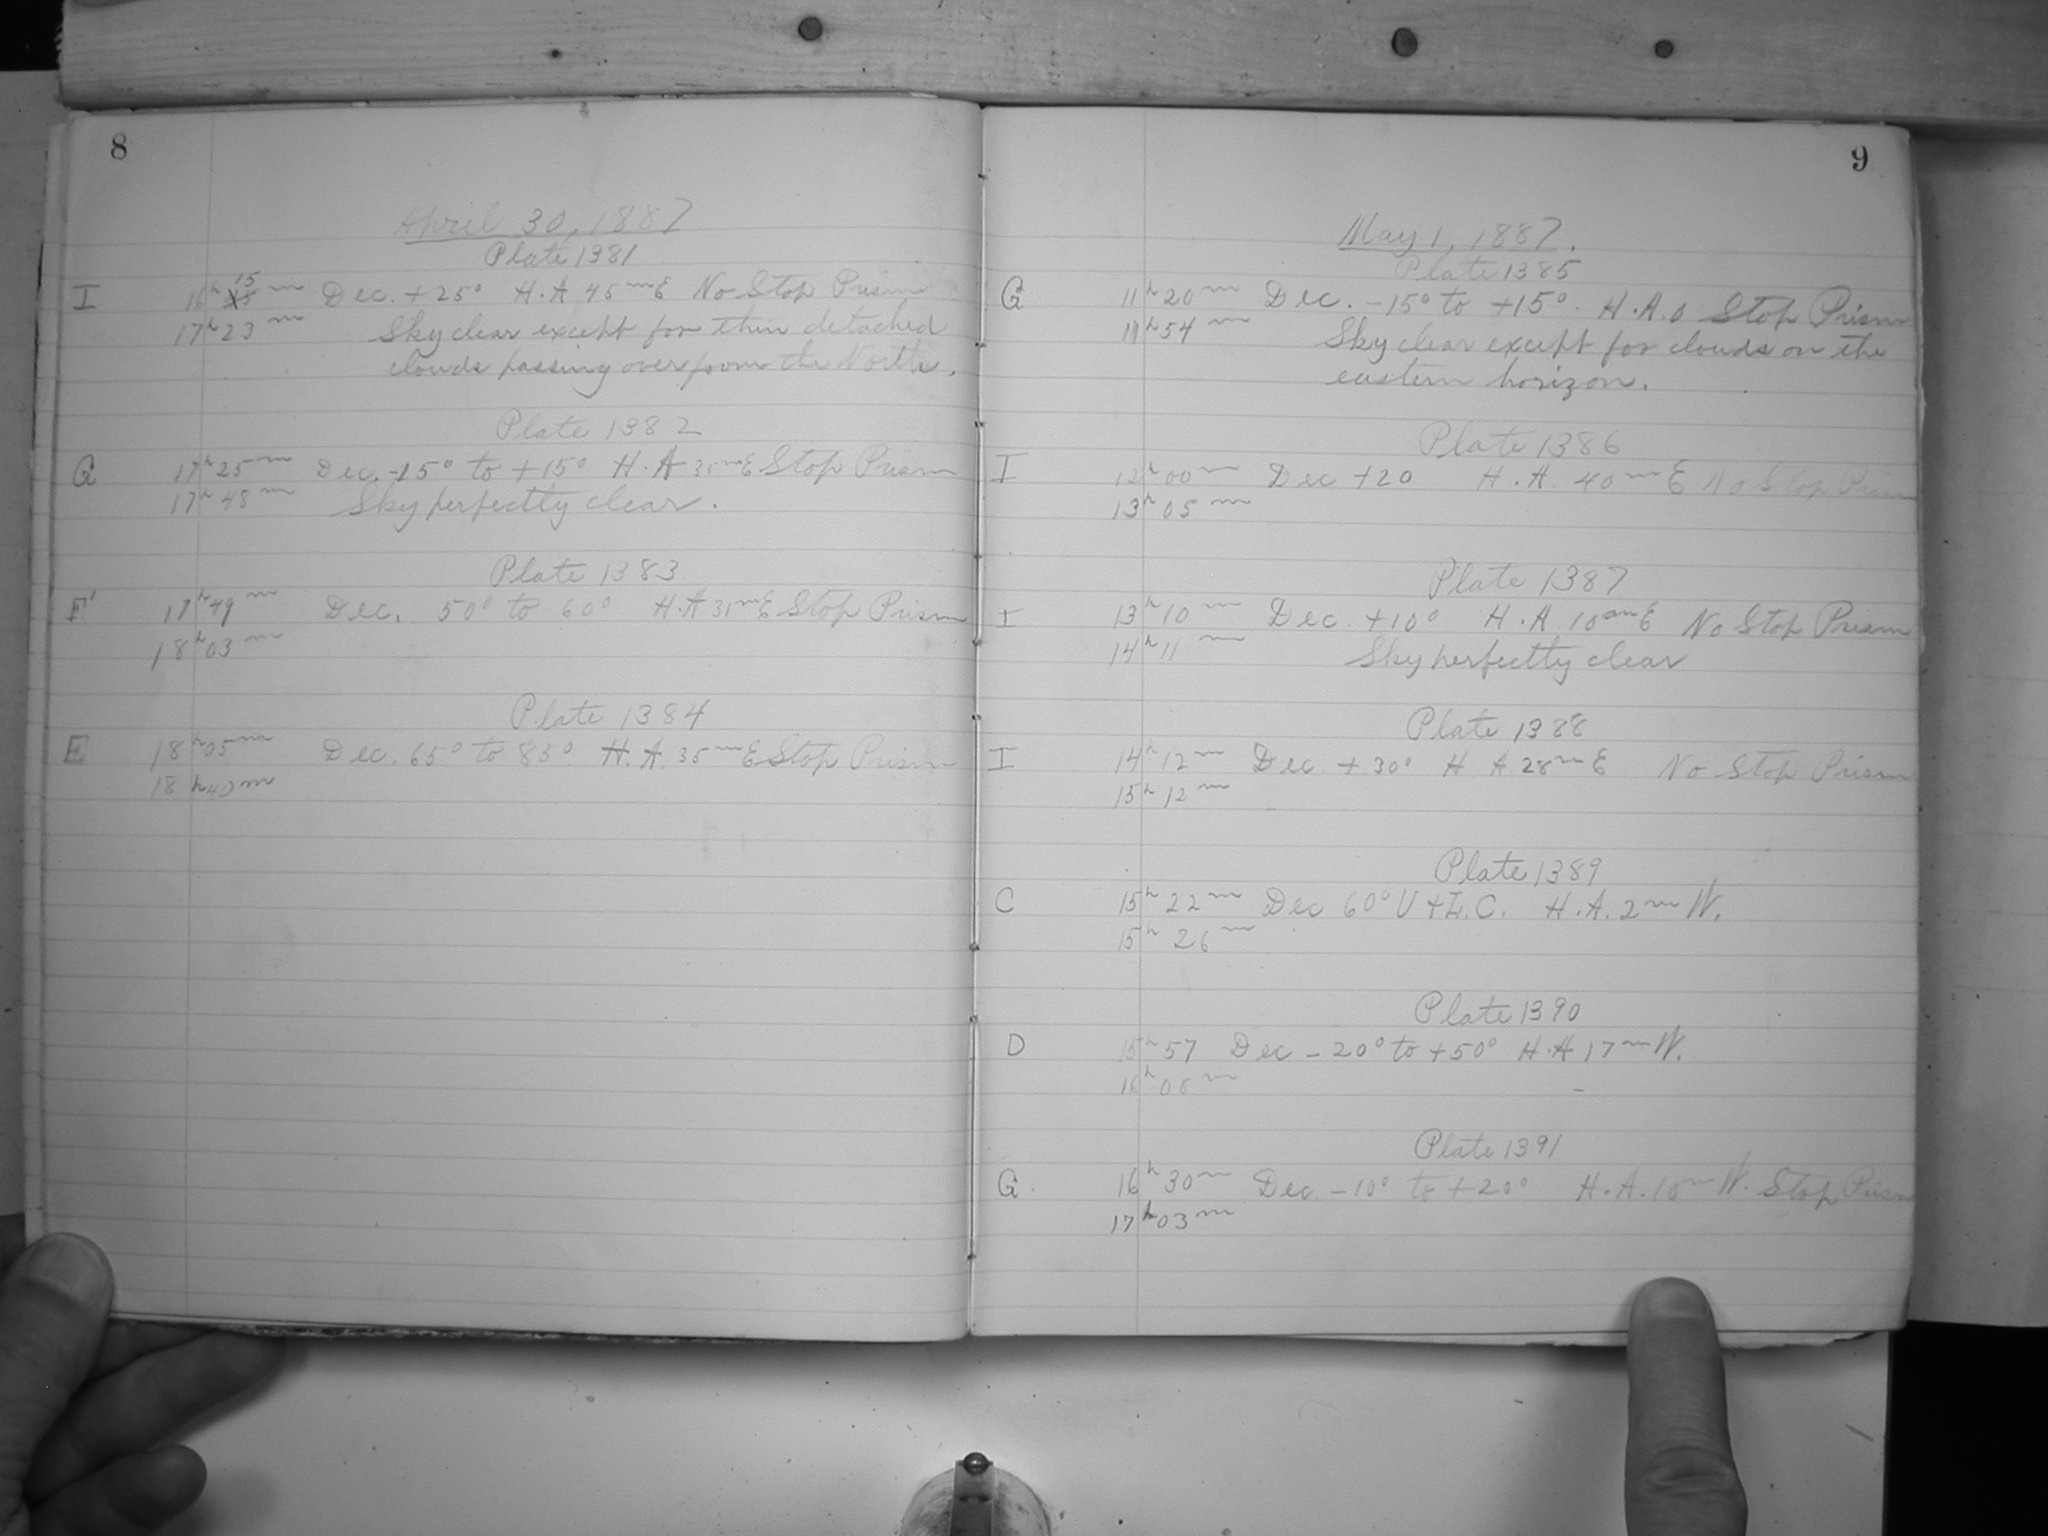 8
April 30, 1887
Plate 1381
I 16h 15m Dec. +25° H.A 45m E No Stop Prism
17h 23m Sky clear except for thin detached
clouds passing over from the North.
Plate 1382
G 17h 25m Dec. -15° to +15° H.A 35m E Stop Prism
17h 48m Sky perfectly clear.
Plate 1383
F' 17h 49m Dec. 50° to 60° H.A 31m E Stop Prism
18h 03m
Plate 1384
E 18h 05m Dec. 65° to 85° H.A. 35m E Stop Prism
18h 40m
9
May 1, 1887.
Plate 1385
G 11h 20m Dec. -15° to +15°. H.A.0 Stop Prism
11h 54m Sky clear except for clouds on the
eastern horizon.
Plate 1386
I 12h 00m Dec +20 H.A. 40m E No Stop Prism
13h 05m
Plate 1387
I 13h 10m Dec. +10° H.A. 10m E No Stop Prism
14h 11m Sky perfectly clear
Plate 1388
I 14h 12m Dec. +30° H A 28m E No Stop Prism
15h 12m
Plate 1389
C 15h 22m Dec 60° U+L.C. H.A. 2m W.
15h 26m
Plate 1390
D 15h 57 Dec -20° to +50° H.A 17m W.
16h 08m
Plate 1391
G. 16h 30m Dec. -10° to +20° H.A. 10m W. Stop Prism
17h 03m